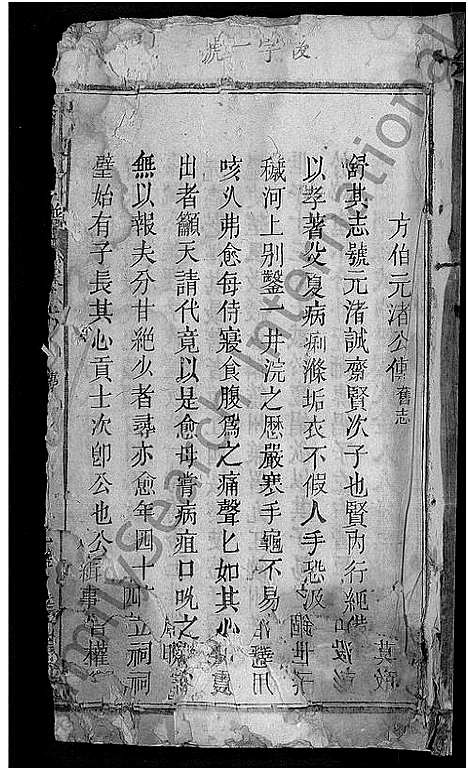 字一號
方伯元渚公傳 舊志
舒其志號元渚誠齋賢次子也賢内行純
以孝著父夏病痢滌垢衣不假人手恐汲
穢河上别鑿一井浣之歷嚴寒手龜不易
咳父弗愈每侍寢食腹為之痛聲匕如其
出者籲天請代竟以是愈母嘗病疽口吮之
無以報夫分甘絶少者尋亦愈年四十
璧始有子長其心貢士次卽公也公
familysearch International